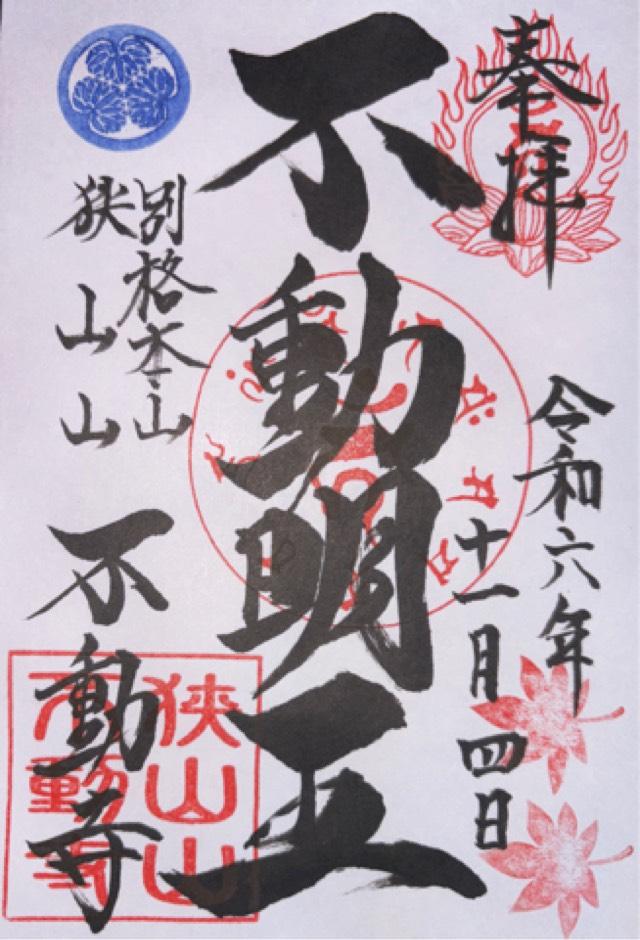 奉拝
令和六年
十一月四日
不動明王
別格本山
狭山山
不動寺
狭山山
不動寺